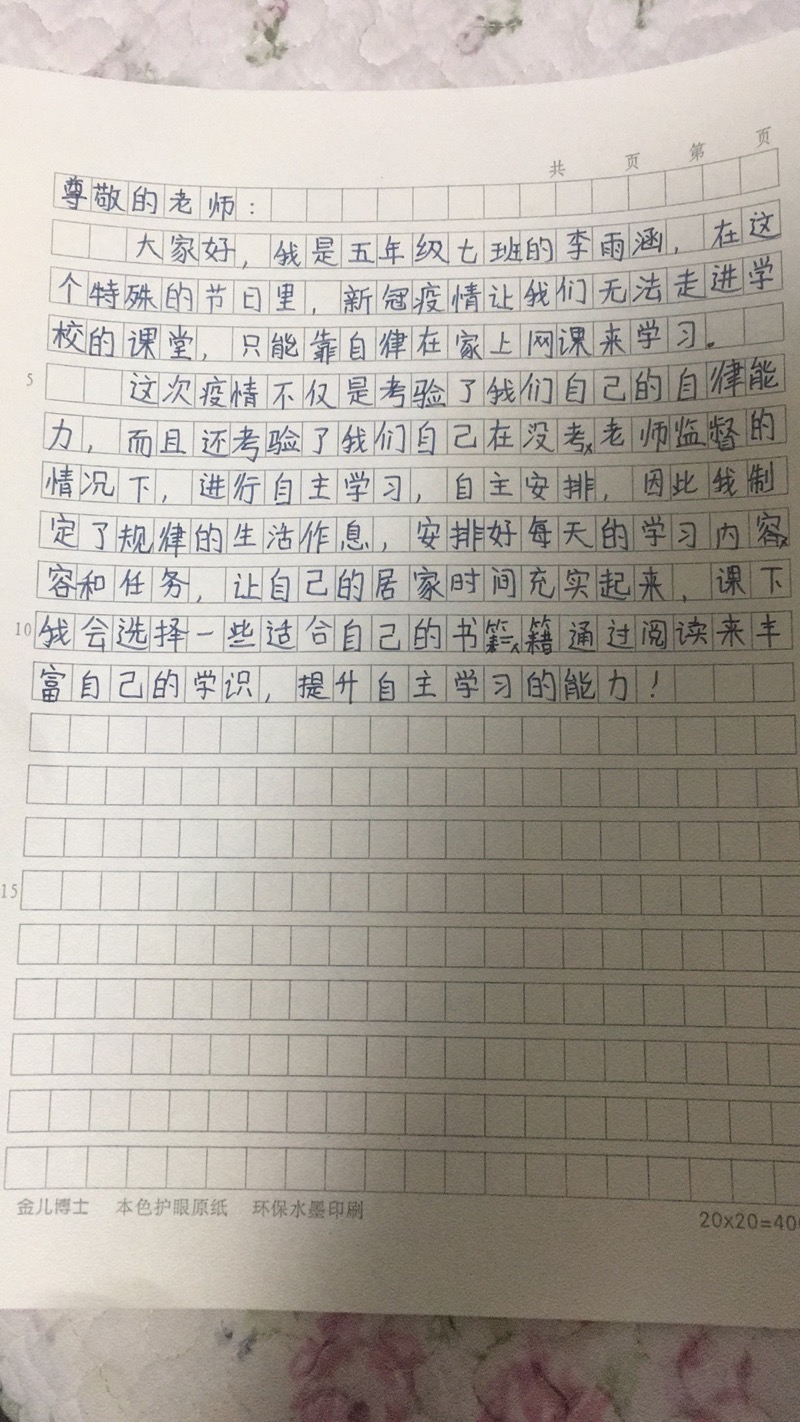 共 页 第 页
尊敬的老师：
大家好，我是五年级七班的李雨涵，在这
个特殊的节日里，新冠疫情让我们无法走进学
校的课堂，只能靠自律在家上网课来学习。
5 这次疫情不仅是考验了我们自己的自律能
力，而且还考验了我们自己在没考老师监督的
情况下，进行自主学习，自主安排，因此我制
定了规律的生活作息，安排好每天的学习内容
容和任务，让自己的居家时间充实起来，课下
10 我会选择一些适合自己的书籍通过阅读来丰
富自己的学识，提升自主学习的能力！
15
金儿博士 本色护眼原纸 环保水墨印刷
20x20=400